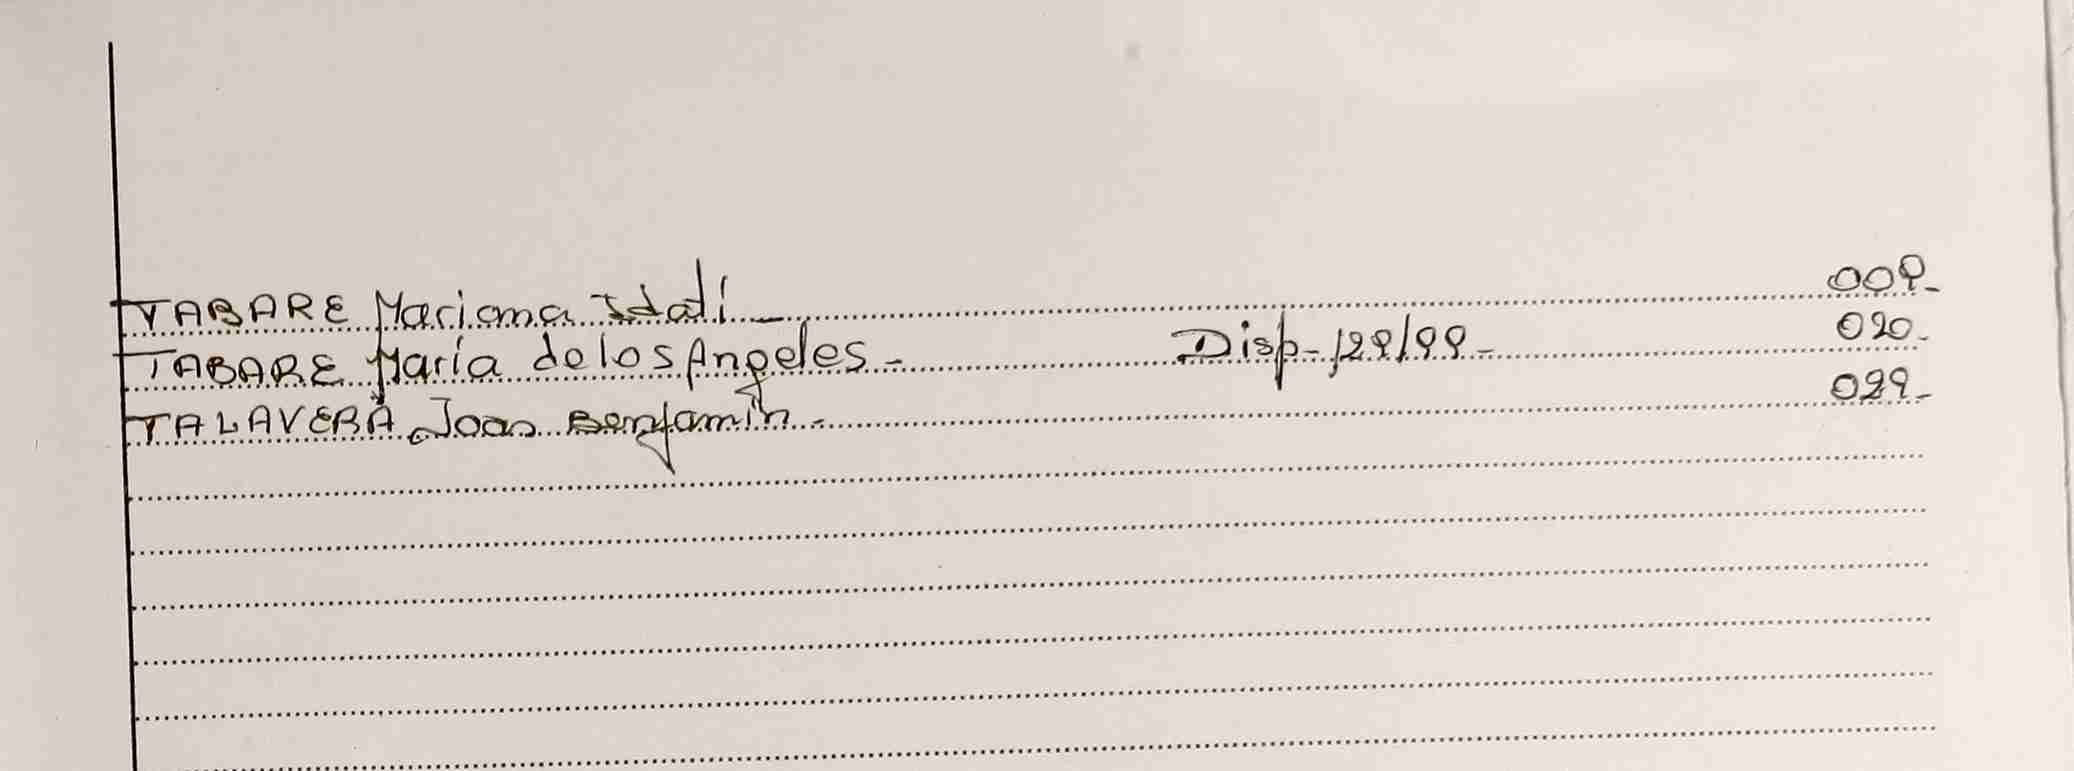 TABARE Mariana Idalí 009-
TABARE María de los Angeles - Disp- 129/99- 020-
TALAVERA Joan Benjamín - 029-